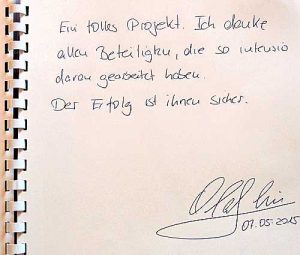 Ein tolles Projekt. Ich danke
allen Beteiligten, die so intensiv
daran gearbeitet haben.
Der Erfolg ist ihnen sicher.
Olaf
07.05.2015